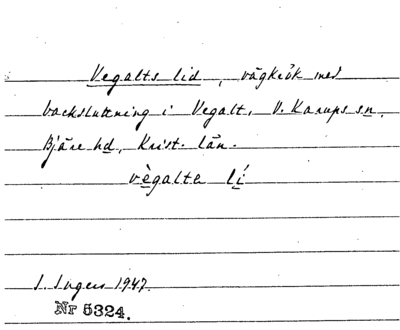 Vegalts lid, vägkrök med
backsluttning i Vegalt, V. Karups sn,
Bjäre hd, Krist. län.
vègalta lí
I. Ingers 1947.
Nr 5324.